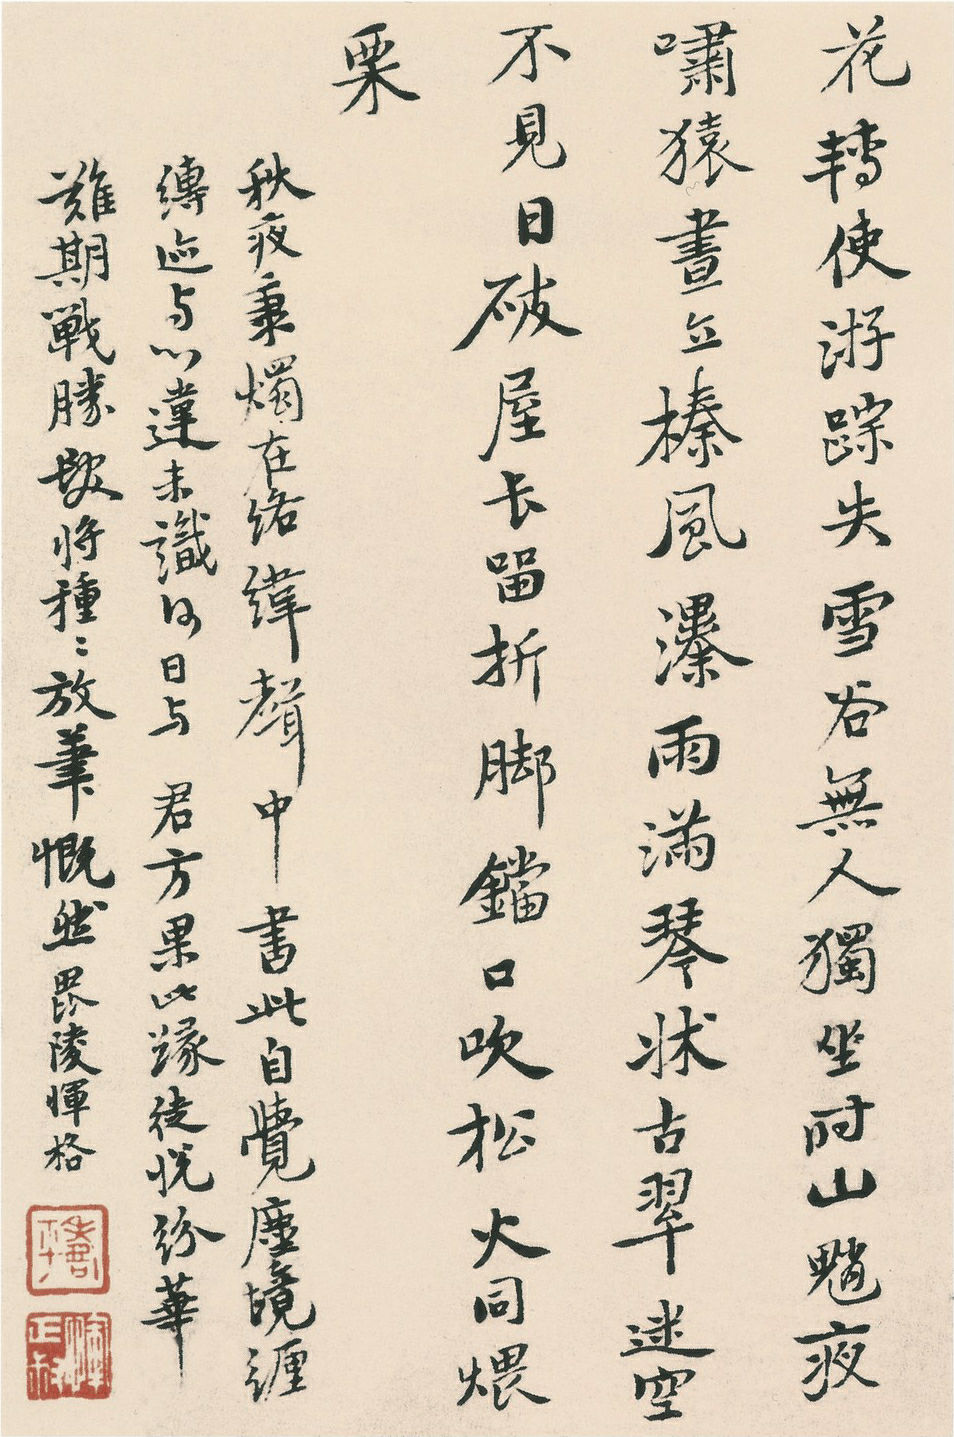 花轉使游踪失雪谷無人獨坐時山魈夜
嘯猿晝立榛風瀑雨滿琴牀古翠迷空
不見日破屋長留折脚鐺口吹松火同煨
栗
秋夜秉燭在絡緯聲中書此自覺塵境纏
縛迹与心違未識何日与君方果此緣徒悅紛華
難期戰勝髮將種種放筆慨然毘陵惲格